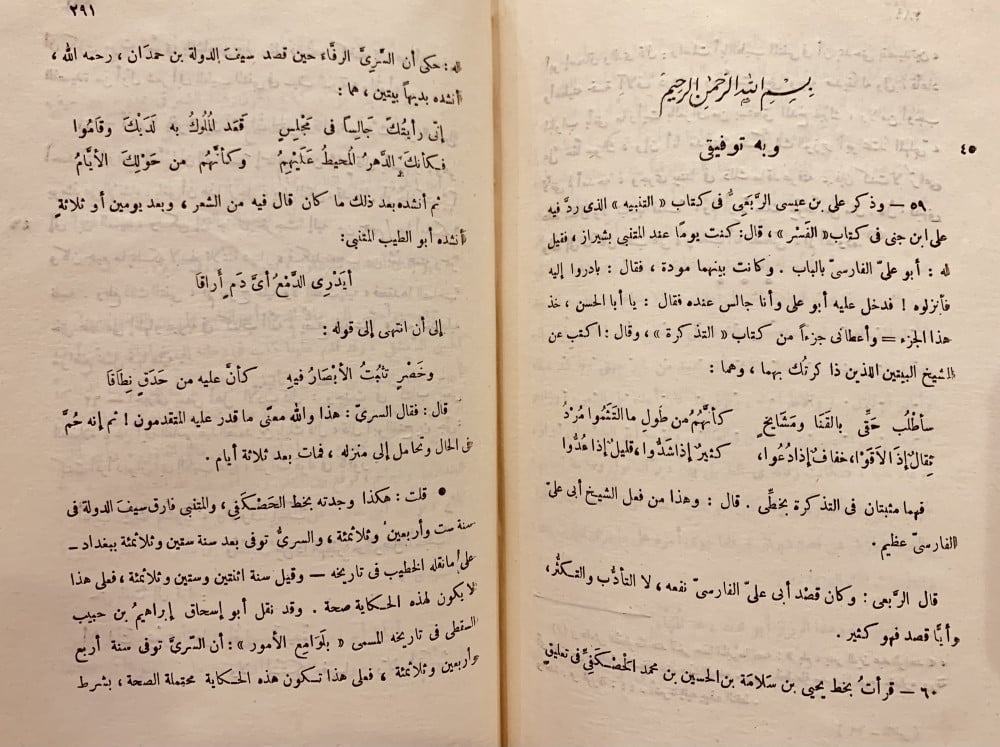 بِسْمِ اللهِ الرَّحْمٰنِ الرَّحِيْمِ
وبه توفيقى
٤٥
٥٩ — وذكر على بن عيسى الرَّبَعِىُّ فى كتاب « التنبيه » الذى ردَّ فيه
على ابن جنى فى كتاب « الفَسْر » ، قال: كنت يومًا عند المتنبى بشيراز ، فقيل
له : أبو علىّ الفارسىّ بالباب . وكانت بينهما مودة ، فقال : بادروا إليه
فأنزلوه ! فدخل عليه أبو على وأنا جالس عنده فقال : يا أبا الحسن ، خذ
هذا الجزء = وأعطانى جزءاً من كتاب « التذكرة » ، وقال : اكتب عن
الشيخ البيتين اللذين ذاكرتُك بهما ، وهما :
سأَطْلُب حَقِّى بالقَنَا ومَشَايخٍ كأنَّهُمُ من طُولِ ما الْتَثَمُوا مُرْدُ
ثِقالٌ إذَا لاَقَوْا، خفافٌ إذا دُعُوا، كثيرٌ إذا شَدُّوا، قليلٌ إذا عُدُّوا
فهما مثبتان فى التذكرة بخطِّى . قال : وهذا من فعل الشيخ أبى علىّ
الفارسىّ عظيم .
قال الرَّبعى : وكان قصْد أبى علىّ الفارسىّ نفعه ، لا التأدُّب والتكثُّر،
وأيًّا قصد فهو كثير .
٦٠ — قرأتُ بخط يحيى بن سَلاَمَة بن الحسين بن محمد الحَصْكَفِىِّ فى تعليقٍ
٢٩١
له : حكى أن السَّرِىَّ الرفَّاء حين قصد سيفَ الدولة بن حمدَان ، رحمه الله ،
أنشده بديهاً بيتين ، هما :
إنى رأيتُكَ جَالِساً فى مَجْلِسٍ قَعَد المُلُوكُ به لَدَيْكَ وقَامُوا
فكأنكَ الدَّهرُ المُحيطُ عَلَيْهِمُ وكأنَّهُم من حَوْلِكَ الأيَّامُ
ثم أنشده بعد ذلك ما كان قال فيه من الشعر ، وبعد يومين أو ثلاثةٍ
أنشده أبو الطيب المتنبى:
أيَدْرِى الدَّمْعُ أىَّ دَمٍ أَرَاقَا
إلى أن انتهى إلى قوله :
وخَصْرٍ تَثبُتُ الأبْصَارُ فيهِ كأنَّ عليه من حَدَقٍ نِطَاقَا
قال: فقال السرىّ : هذا والله معنًى ما قدر عليه المتقدمون ! ثم إنه حُمَّ
فى الحال وتحامل إلى منزله ، فمات بعد ثلاثة أيام .
• قلت : هكذا وجدته بخط الحَصْكَفىِ ، والمتنبى فارق سيفَ الدولة فى
سنة ست وأربعين وثلاثمئة ، والسرىُّ توفى بعد سنة ستين وثلاثمئة ببغداد —
على ما نقله الخطيب فى تاريخه — وقيل سنة اثنتين وستين وثلاثمئة ، فعلى هذا
لا يكون لهذه الحكاية صحة . وقد نقل أبو إسحاق إبراهيمُ بن حبيب
السقطى فى تاريخه المسمى « بلَوَامِع الأمور » : أن السّرىَّ توفى سنة أربع
وأربعين وثلاثمئة ، فعلى هذا تكون هذه الحكاية محتملة الصحة ، بشرط